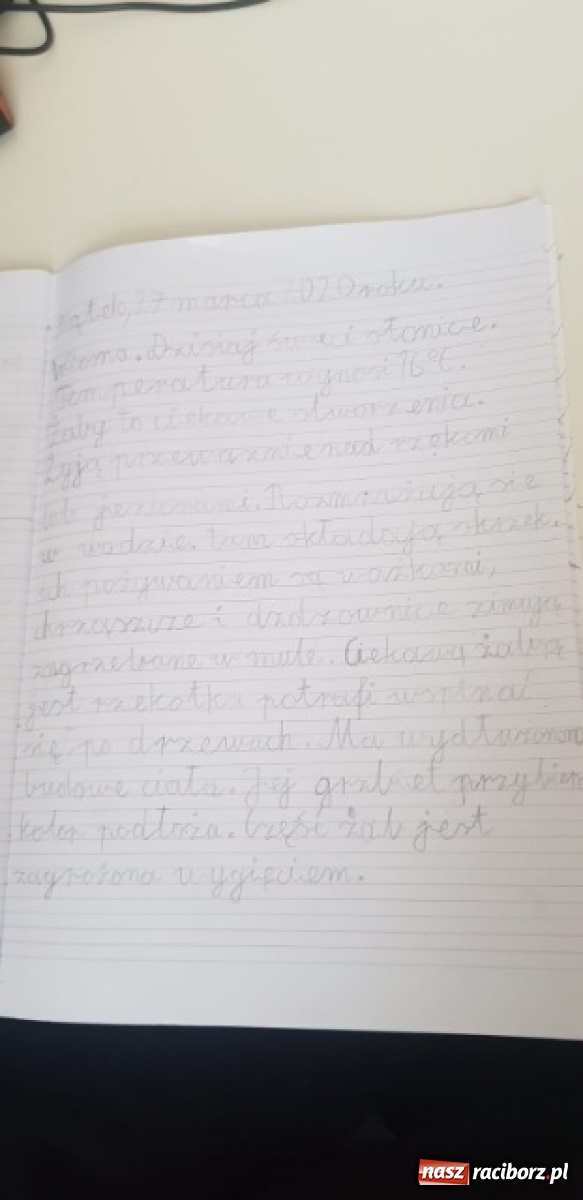 Piątek, 27 marca 2020 roku.
Wiosna. Dzisiaj świeci słońce.
Temperatura wynosi 16°C.
Żaby to ciekawe stworzenia.
Żyją przeważnie nad rzekami
lub jeziorami. Rozmnażają się
w wodzie. tam składają skrzek.
ich pożywaniem są ważkami,
chrząszcze i dżdżownice zimują
zagrzebane w mule. Ciekawą żabą
jest rzekotka potrafi wspinać
się po drzewach. Ma wydłużoną
budowe ciała. Jej grzbiet przybiera
kolor podłoża. Część żab jest
zagrożona wygięciem.
nasz raciborz.pl